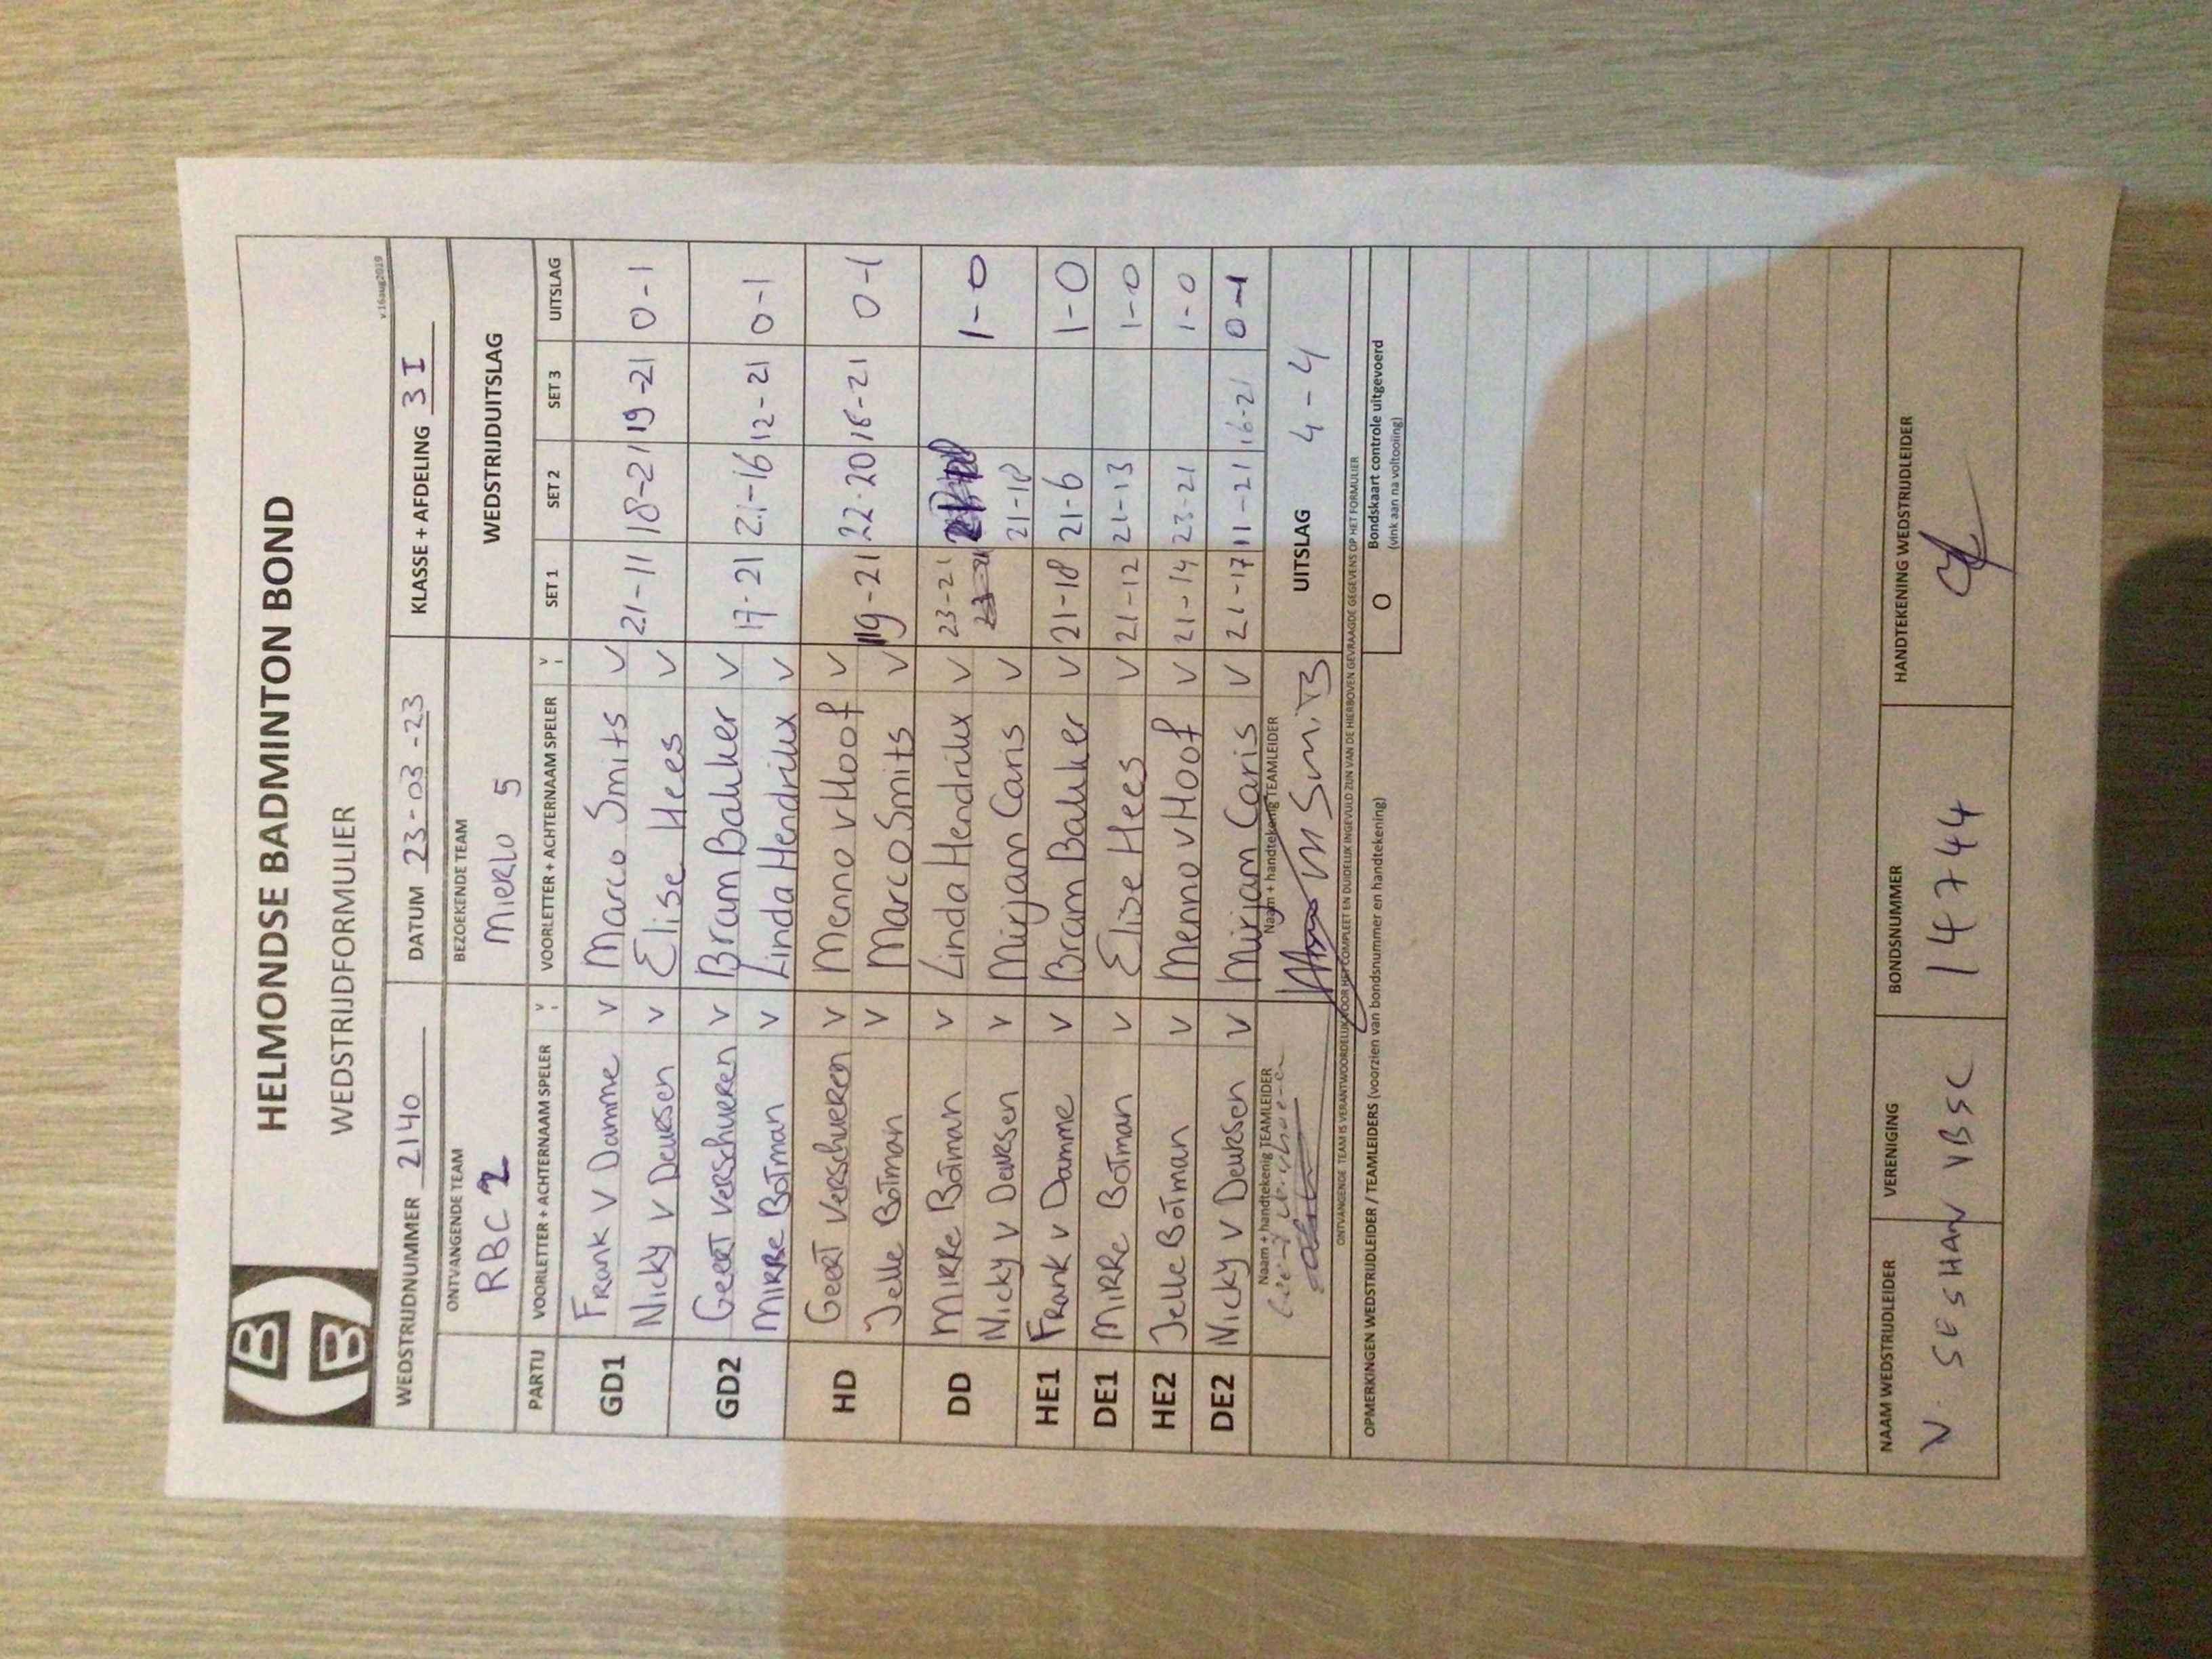 HELMONDSE BADMINTON BOND
WEDSTRIJDFORMULIER
v.16aug2019
WEDSTRIJDNUMMER 2140 DATUM 23-03-23 KLASSE + AFDELING 3 I
ONTVANGENDE TEAM BEZOEKENDE TEAM WEDSTRIJDUITSLAG
RBC 2 MIERLO 5
PARTIJ VOORLETTER + ACHTERNAAM SPELER V VOORLETTER + ACHTERNAAM SPELER V SET 1 SET 2 SET 3 UITSLAG
GD1 Frank V Damme V Marco Smits V 21-11 18-21 19-21 0-1
Nicky V Deursen V Elise Hees V
GD2 Geert Verschueren V Bram Bakker V 17-21 21-16 12-21 0-1
Mirre Botman V Linda Hendrikx V
HD Geert Verschueren V Menno v Hoof V 19-21 22-20 18-21 0-1
Jelle Botman V Marco Smits V
DD Mirre Botman V Linda Hendrikx V 23-21 1-0
Nicky V Deursen V Mirjam Caris V 21-18
HE1 Frank v Damme V Bram Bakker V 21-18 21-6 1-0
DE1 Mirre Botman V Elise Hees V 21-12 21-13 1-0
HE2 Jelle Botman V Menno v Hoof V 21-14 23-21 1-0
DE2 Nicky V Deursen V Mirjam Caris V 21-17 11-21 16-21 0-1
Naam + handtekenig TEAMLEIDER Naam + handtekenig TEAMLEIDER UITSLAG 4-4
M Smits
ONTVANGENDE TEAM IS VERANTWOORDELIJK VOOR HET COMPLEET EN DUIDELIJK INGEVULD ZIJN VAN DE HIERBOVEN GEVRAAGDE GEGEVENS OP HET FORMULIER
OPMERKINGEN WEDSTRIJDLEIDER / TEAMLEIDERS (voorzien van bondsnummer en handtekening)
O Bondskaart controle uitgevoerd
(vink aan na voltooiing)
NAAM WEDSTRIJDLEIDER VERENIGING BONDSNUMMER HANDTEKENING WEDSTRIJDLEIDER
V. SESHAN VBSC 14744